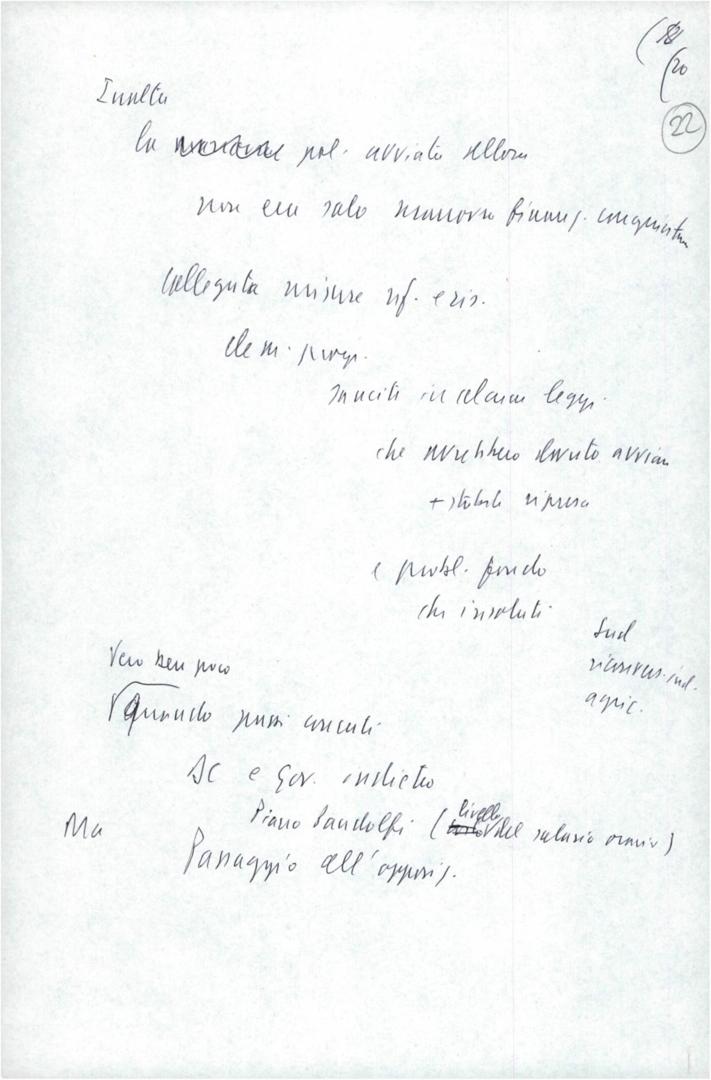 (18
(20
22
Inoltre
la manovra pol. avviata allora
non era solo manovra finanz. congiuntur
collegata misure rif. e ris.
elem. progr.
sanciti in alcune leggi
che avrebbero dovuto avviare
+ stabile ripresa
e probl. fondo
che insoluti
Sud
riconvers. ind.
agric.
Vero ben poco
quando passi concreti
DC e Gov. indietro
Piano Pandolfi (livello del salario orario)
Ma
Passaggio all'opposiz.